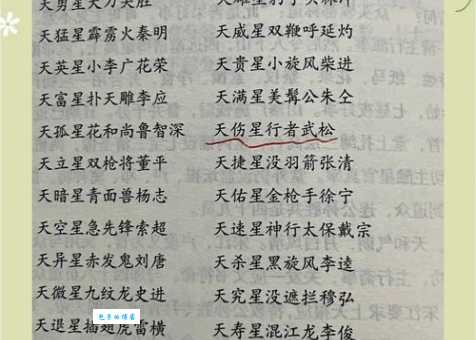 天勇星大刀关胜
天猛星霹雳火秦明 天威星双鞭呼延灼
天英星小李广花荣 天贵星小旋风柴进
天富星扑天雕李应 天满星美髯公朱仝
天孤星花和尚鲁智深 天伤星行者武松
天立星双枪将董平 天捷星没羽箭张清
天暗星青面兽杨志 天佑星金枪手徐宁
天空星急先锋索超 天速星神行太保戴宗
天异星赤发鬼刘唐 天杀星黑旋风李逵
天微星九纹龙史进 天究星没遮拦穆弘
天退星插翅虎雷横 天寿星混江龙李俊